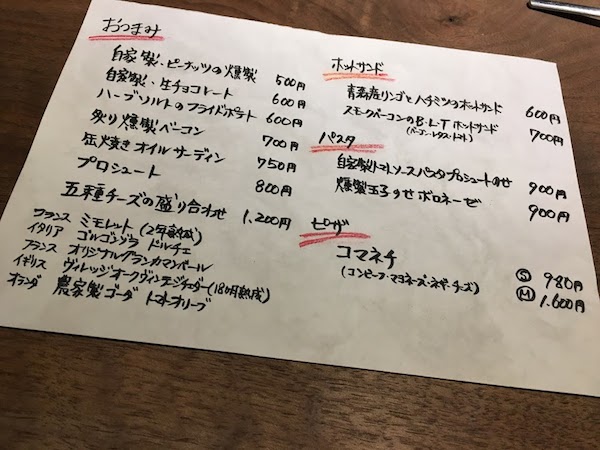 おつまみ
自家製、ピーナッツの燻製 500円
自家製、生チョコレート 600円
ハーブソルトのフライドポテト 600円
炙り燻製ベーコン 700円
缶焼きオイルサーディン 750円
プロシュート 800円
五種チーズの盛り合わせ 1,200円
フランス ミモレット(2年熟成)
イタリア ゴルゴンゾラ ドルチェ
フランス オリジナルグランカマンベール
イギリス ヴィレッジオークヴィンテージチェダー(18ヶ月熟成)
オランダ 農家製ゴーダ トマトオリーブ
ホットサンド
青森産リンゴとハチミツのホットサンド 600円
スモークベーコンのB・L・Tホットサンド 700円
(ベーコン・レタス・トマト)
パスタ
自家製トマトソースパスタプロシュートのせ 900円
燻製玉子のせボロネーゼ 900円
ピザ
コマネチ
(コンビーフ・マヨネーズ・ネギ・チーズ)
Ⓢ 980円
Ⓜ 1,600円